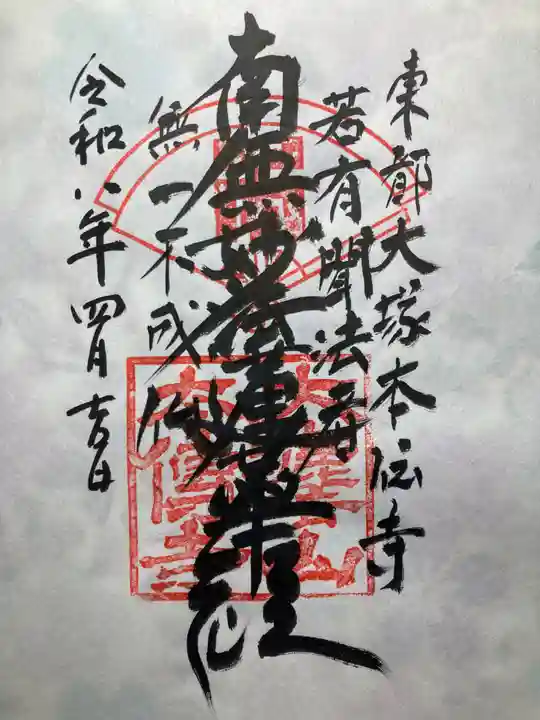 東都大塚本伝寺
若有聞法者
南無妙法蓮華経
無一不成仏
令和八年四月吉日
大
山
本傳寺